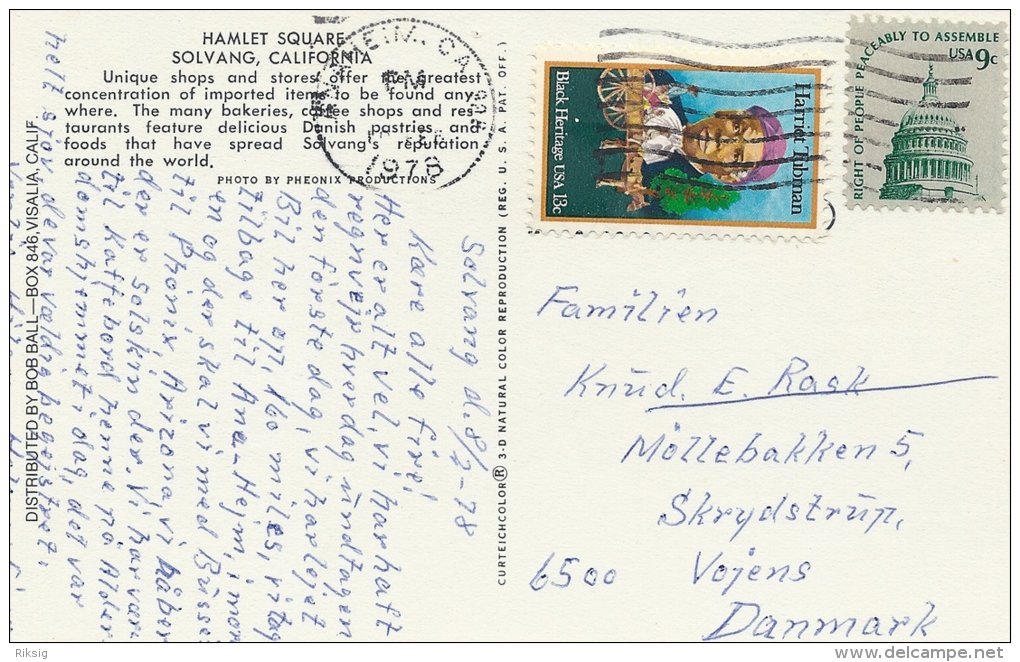 HAMLET SQUARE
SOLVANG, CALIFORNIA
Unique shops and stores offer the greatest
concentration of imported items to be found any-
where. The many bakeries, coffee shops and res-
taurants feature delicious Danish pastries and
foods that have spread Solvang's reputation
around the world.
PHOTO BY PHEONIX PRODUCTIONS
ANAHEIM, CA
PM
1978
Harriet Tubman
Black Heritage USA 13c
RIGHT OF PEOPLE PEACEABLY TO ASSEMBLE
USA 9c
DISTRIBUTED BY BOB BALL—BOX 846, VISALIA, CALIF.
CURTEICHCOLOR® 3-D NATURAL COLOR REPRODUCTION (REG. U. S. A. PAT. OFF.)
Solvang d. 8/2-78
Kære alle fire!
Her er alt vel, vi har haft
regnvejr hverdag undtagen
den første dag, vi har lejet
Bil her og, 60 miles, i dag
tilbage til Ana-Hejm, i mor
en og der skal vi med Busse
til Phønix Arizona, vi håber
der er Solskin der. Vi har vær
til Kaffebord henne på Alder
domshjemmet i dag, det var
helt sjov de var vældig begejstret.
Familien
Knud. E. Rask
Möllebakken 5,
Skrydstrup,
6500 Vojens
Danmark
Riksig
www.delcampe.net